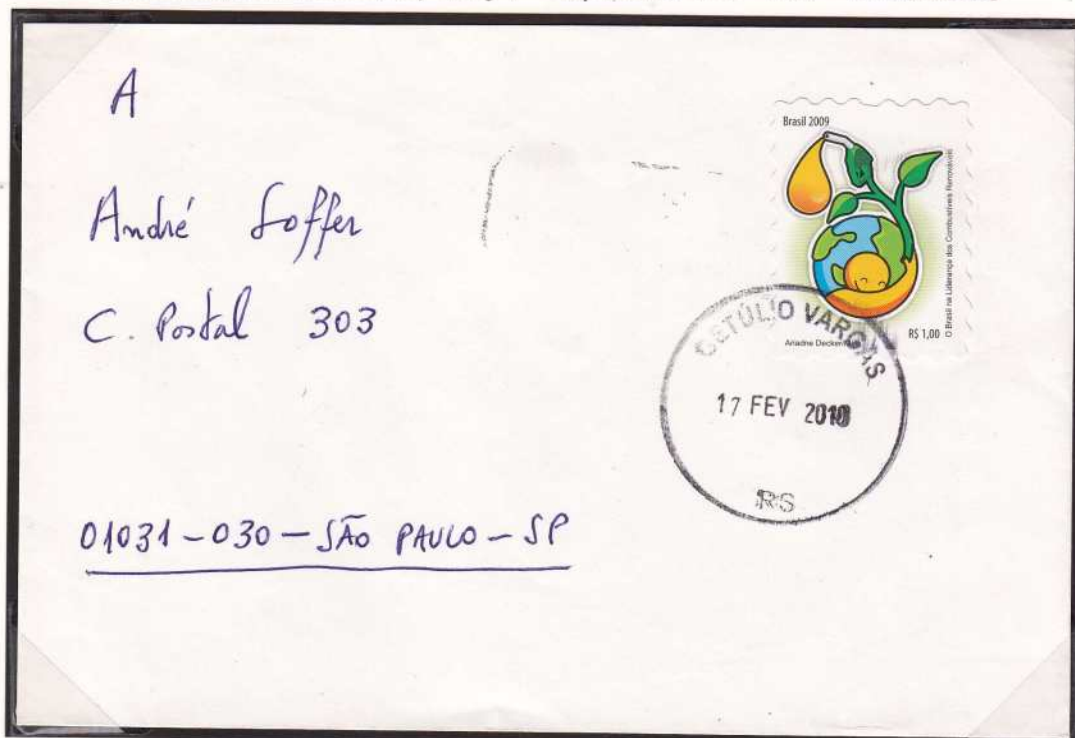 A
André Soffer
C. Postal 303
01031-030-SÃO PAULO-SP
Brasil 2009
O Brasil na Liderança dos Combustíveis Renováveis
R$ 1,00
Ariadne
GETÚLIO VARGAS
17 FEV 2010
RS